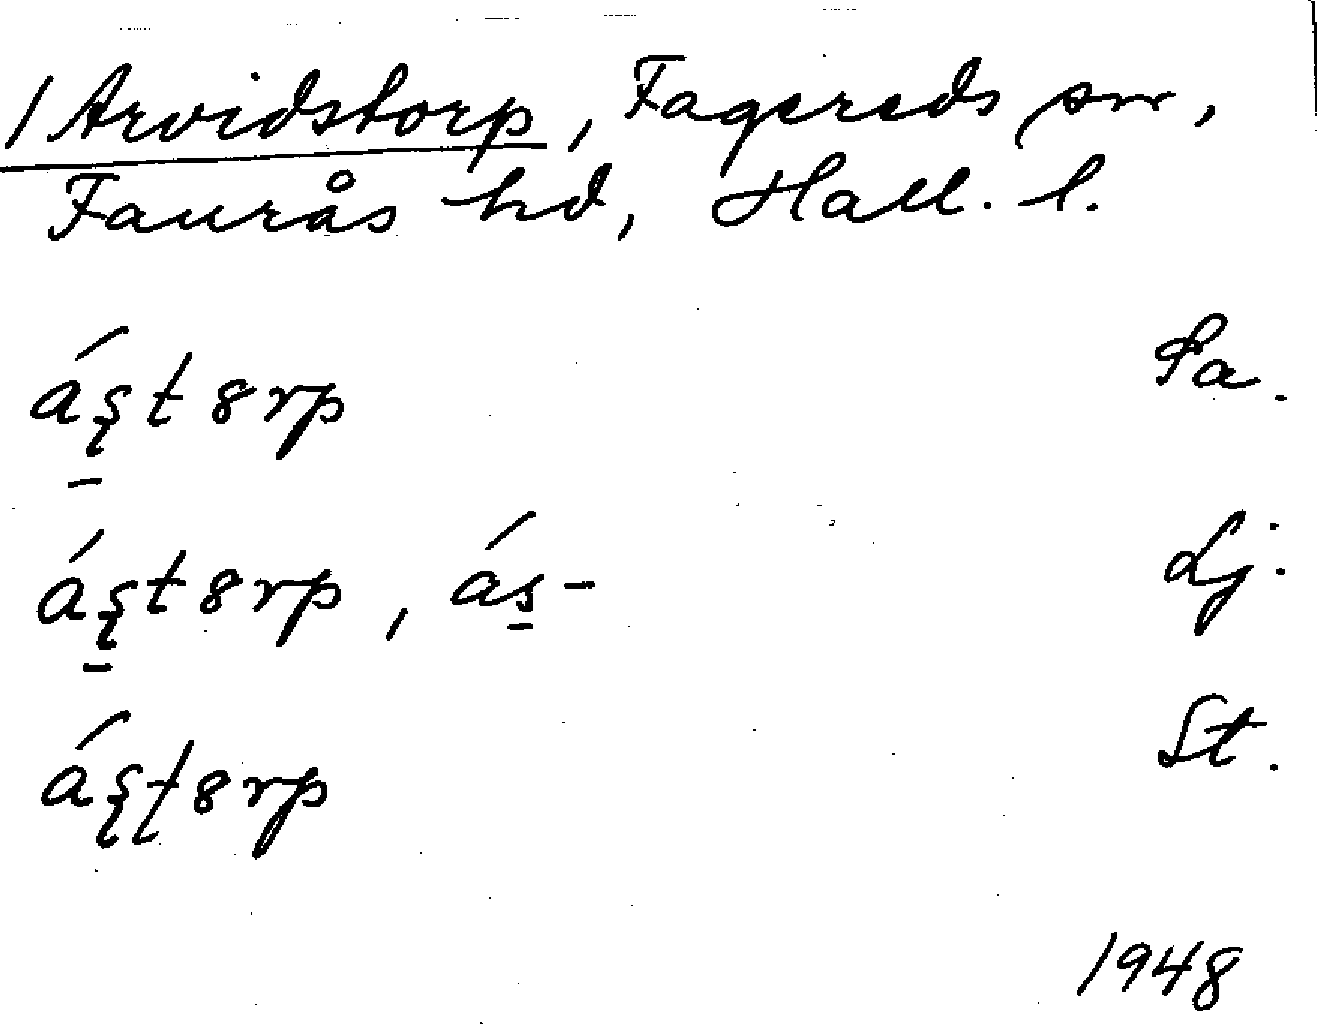 / Arvidstorp, Fagereds sn,
Faurås hd, Hall. l.
á̱ʂt8rp Sa.
áʂ̱t8rp, ás̱- Lj.
áʂʈ8rp St.
1948